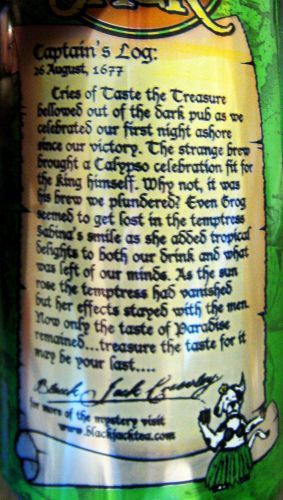 Captain's Log:
26 August, 1677
Cries of Taste the Treasure
bellowed out of the dark pub as we
celebrated our first night ashore
since our victory. The strange brew
brought a Calypso celebration fit for
the king himself. Why not, it was
his brew we plundered? Even Grog
seemed to get lost in the temptress
Sabina's smile as she added tropical
delights to both our drink and what
was left of our minds. As the sun
rose the temptress had vanished
but her effects stayed with the men.
Now only the taste of Paradise
remained...treasure the taste for it
may be your last....
Black Jack Crowley
for more of the mystery visit
www.blackjacktea.com